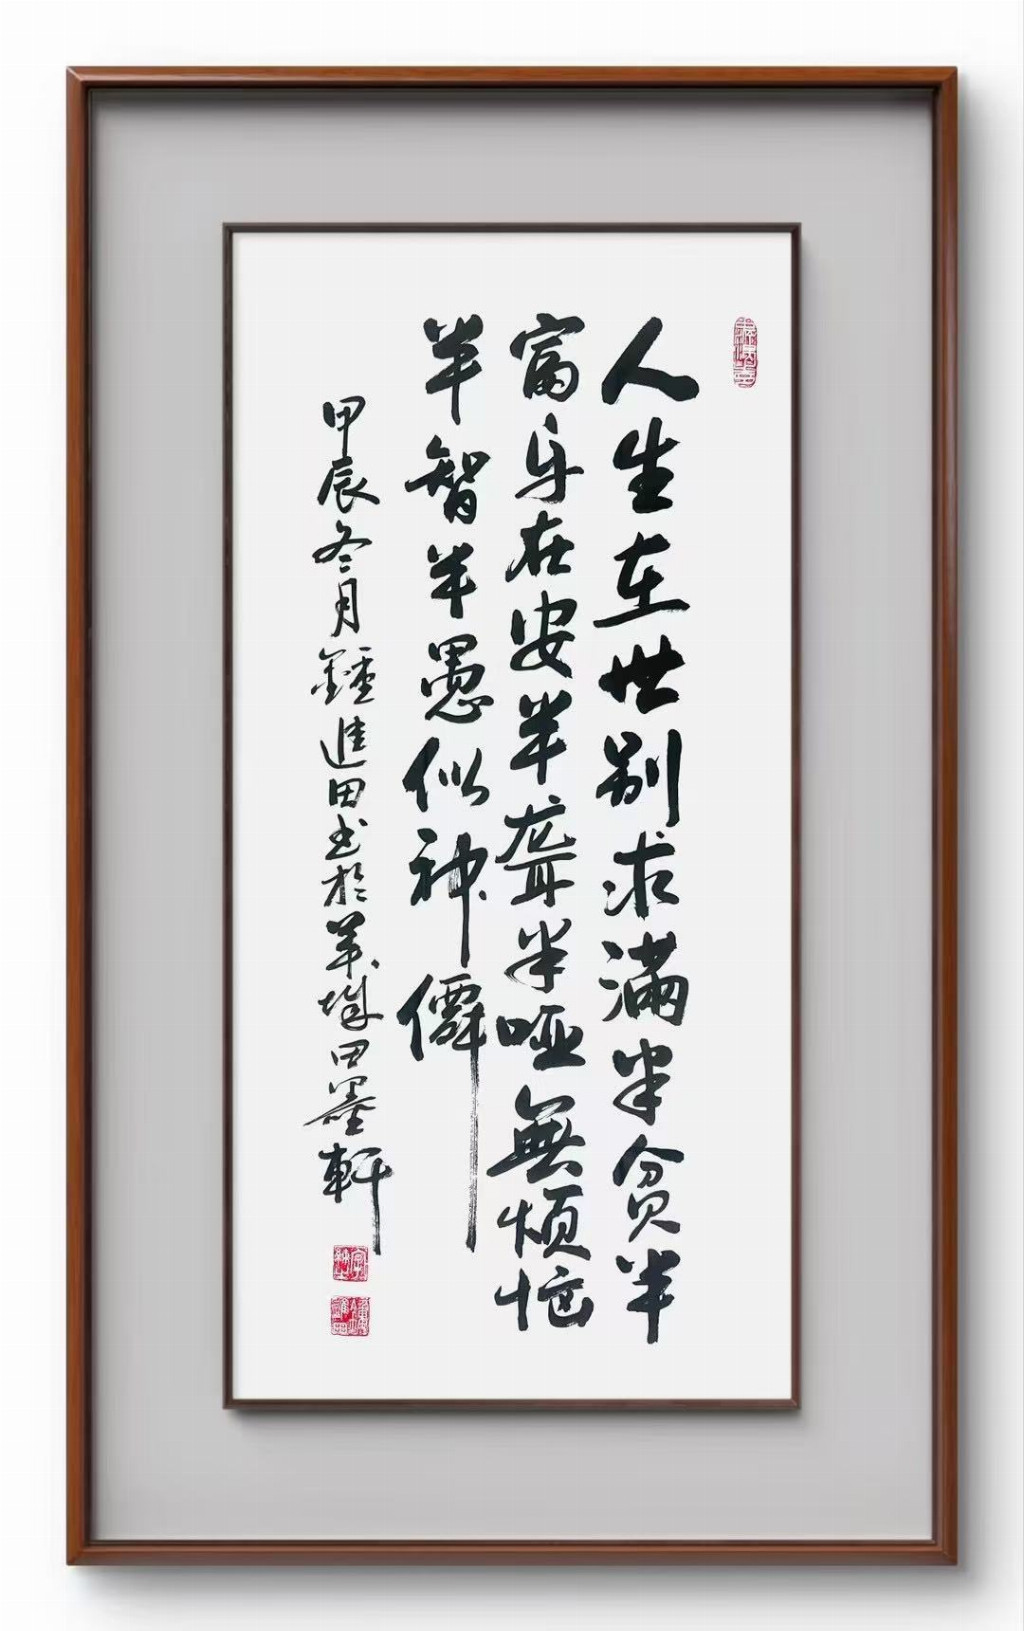 人生在世别求滿半贫半
富乐在安半聋半哑無烦恼
半智半愚似神僊
甲辰冬月鍾進田书於羊城田墨軒